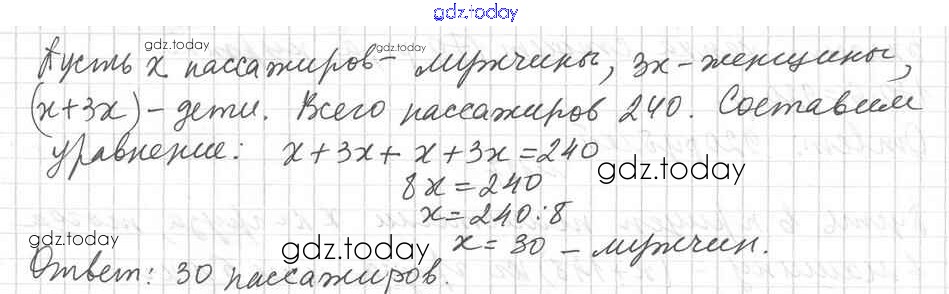 gdz.today
Пусть x пассажиров - мужчины, 3x - женщины,
gdz.today gdz.today
(x+3x) - дети. Всего пассажиров 240. Составим
уравнение: x+3x+x+3x=240
gdz.today
8x=240
x=240:8
gdz.today gdz.today
x=30 - мужчин.
Ответ: 30 пассажиров.